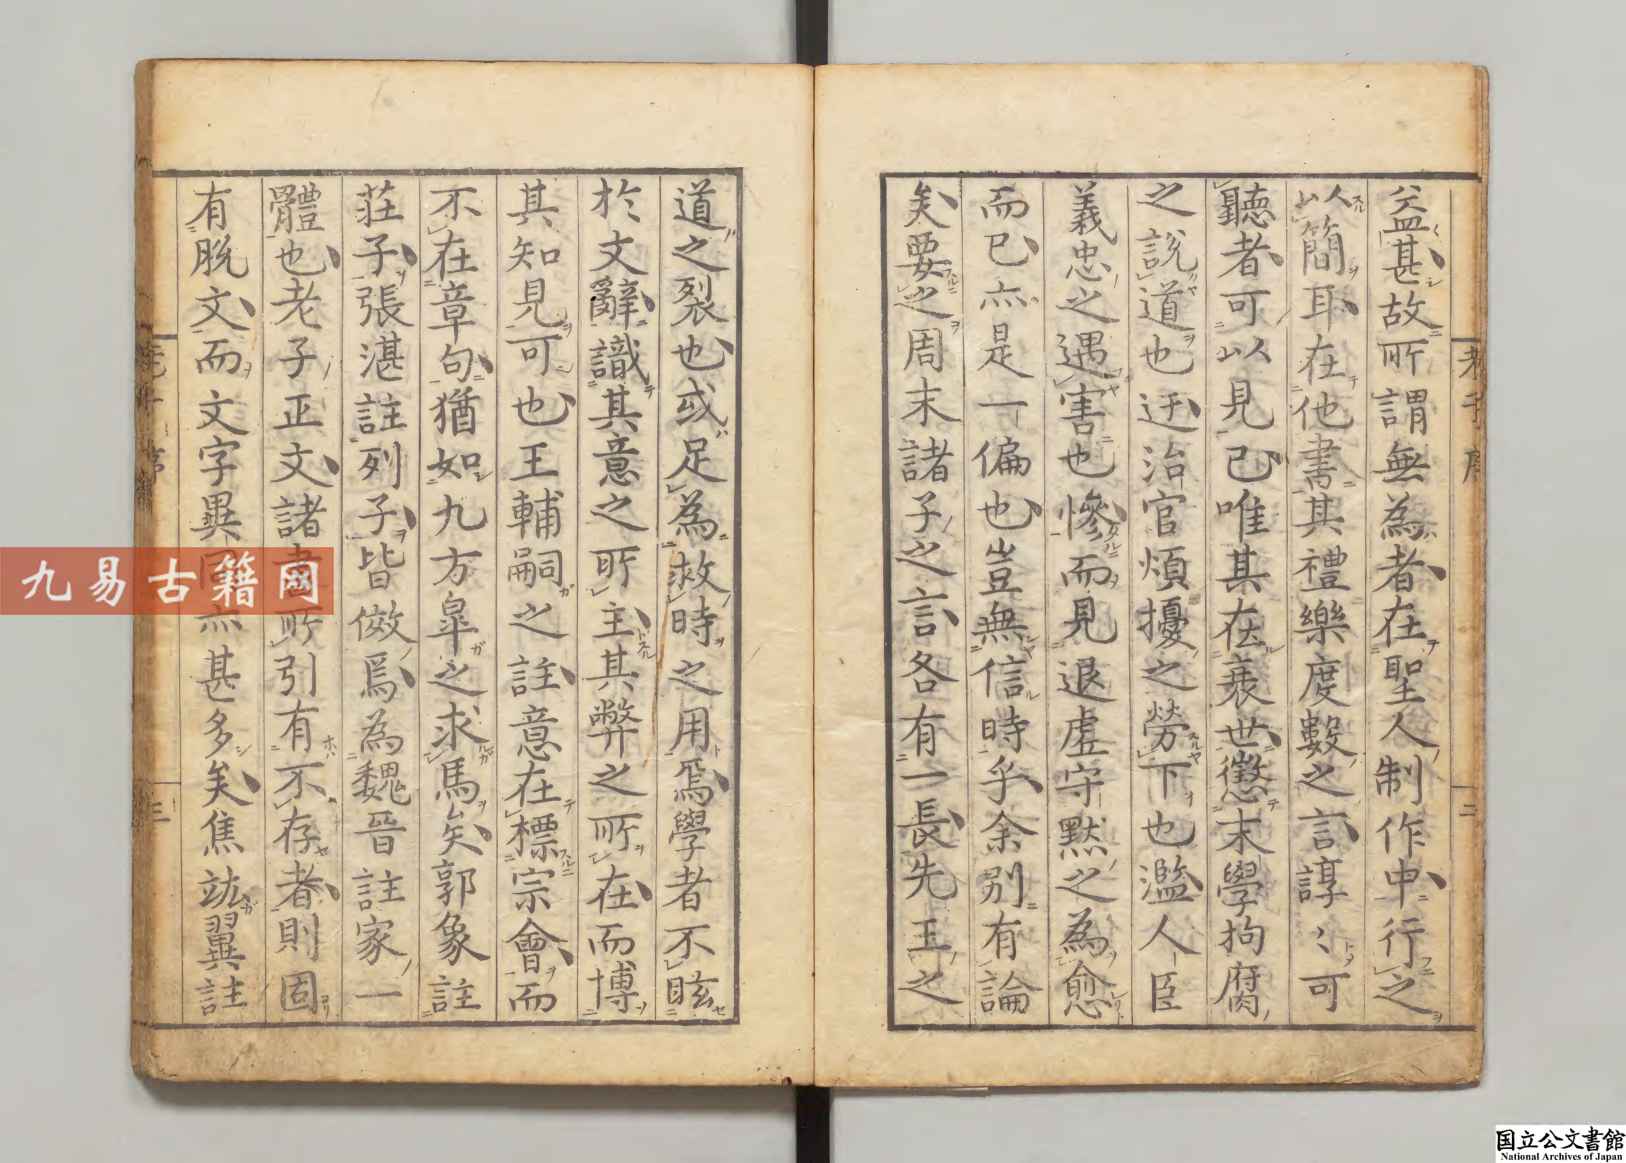 益甚故所謂無為者在聖人制作中行之
以簡耳在他書其禮樂度數之言諄〻可
聽者可以見已唯其在衰世懲末學拘腐
之說道也迂治官煩擾之勞下也濫人臣
義忠之遇害也慘而見退虛守默之為愈
而已亦是一偏也豈無信時乎余別有論
矣要之周末諸子之言各有一長先王之
道之裂也或足為救時之用焉學者不眩
於文辭識其意之所主其弊之所在而博
其知見可也王輔嗣之註意在標宗會而
不在章句猶如九方皐之求馬矣郭象註
莊子張湛註列子皆倣焉為魏晉註家一
體也老子正文諸書所引有不存者則固
有脫文而文字異同亦甚多矣焦竑翼註
老子序
二
三
九易古籍网
国立公文書館
National Archives of Japan